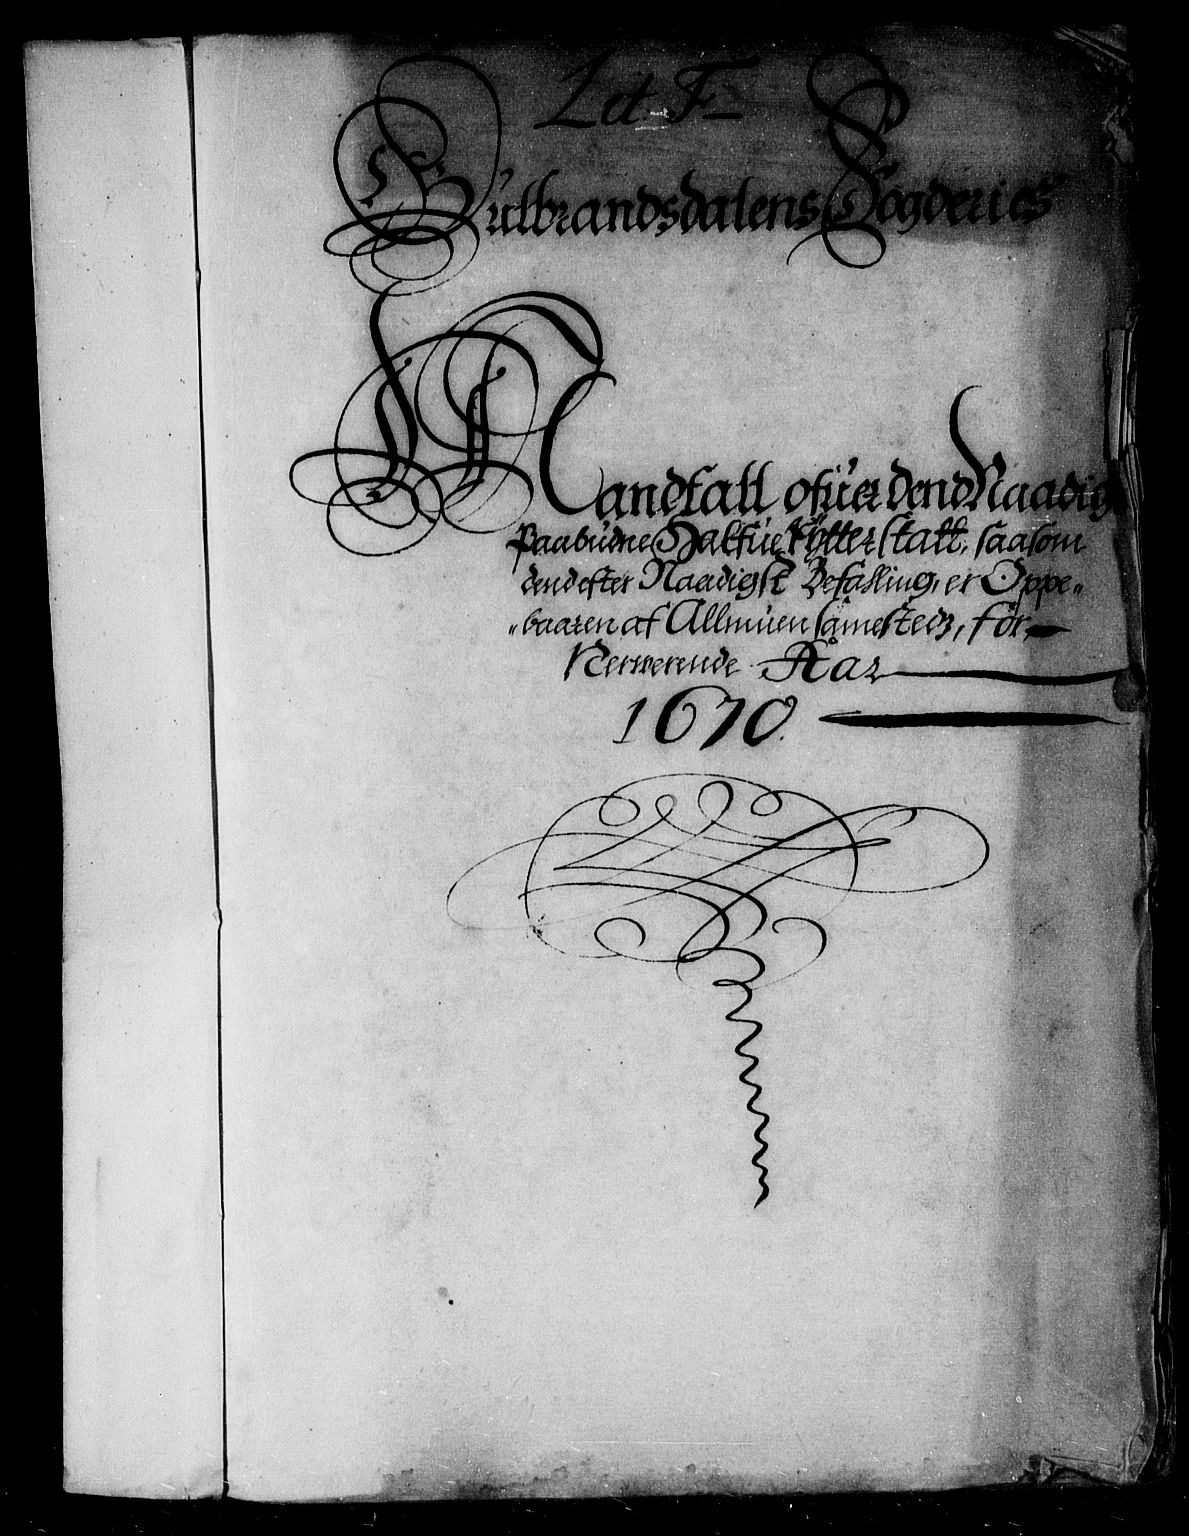 Lit. F
Gulbrandsdalens Fogderies
Mandtall ofuer dend Naadigst
Paabudne Halfue Rytter skatt, saasom
dend efter Naadigst Befalling, er Oppe„
„baaren af Allmuen samesteds, for
Nerwerende Aar
1670.